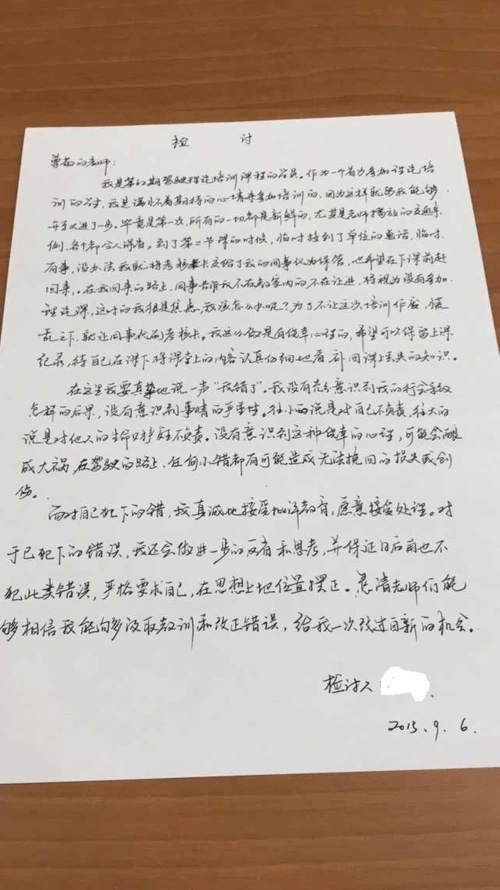 检 讨
尊敬的老师：
我是第 期驾驶 培训课程的学员。作为一个首次参加 培
训的 ，我是满怀着期待的心情来参加培训的，因为这样就 我能够
又进了一步。毕竟是第一次，所有的一切都是新鲜的，尤其是老师播放的交通案
例，各个都令人深省。到了第一节课的时候，临时接到了单位的电话，临时
有事，没办法我就将考核卡交给了我的同事代为保管，也希望在下课前赶
回来。在我回来的路上，同事告诉我不在教室内的不在让进，将视为没有参加
课，这时的我很是焦虑，我该怎么办呢？为了不让这次培训作废，慌
乱之下，就让同事代 考核卡。我这么做是有侥幸心理的，希望可以保留上课
纪录，待自己在课下将课堂上的内容认真仔细地看，补回课上丢失的知识。
在这里我要真挚地说一声“我错了”。我没有充分意识到我的行会导致
怎样的后果，没有意识到事情的严重性。往小的说是对自己不负责，往大的
说是对他人的生命财产不负责。没有意识到这种侥幸的心理，可能会酿
成大祸，在驾驶的路上，任何小错都有可能造成无法挽回的损失或创
伤。
面对自己犯下的错，我真诚地接受批评教育，愿意接受处理。对
于已犯下的错误，我还会做进一步的反省和思考，并保证日后再也不
犯此类错误，严格要求自己，在思想上地位置摆正。恳请老师们能
够相信我能够多汲取教训和改正错误，给我一次改过自新的机会。
检讨人
2015.9.6